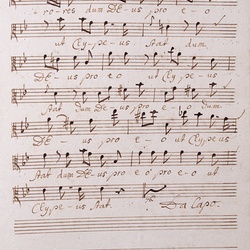 - rores dum DE - us pro e - o
ut Cly - pe - us stat dum
DE - us pro e o ut Cly - pe - us
stat dum DE - us pro e - o dum
DE - us, pro e - o ut Clypeus
stat dum DE - us, pro e o, pro e o ut
Cly, pe - us stat. Da Capo.